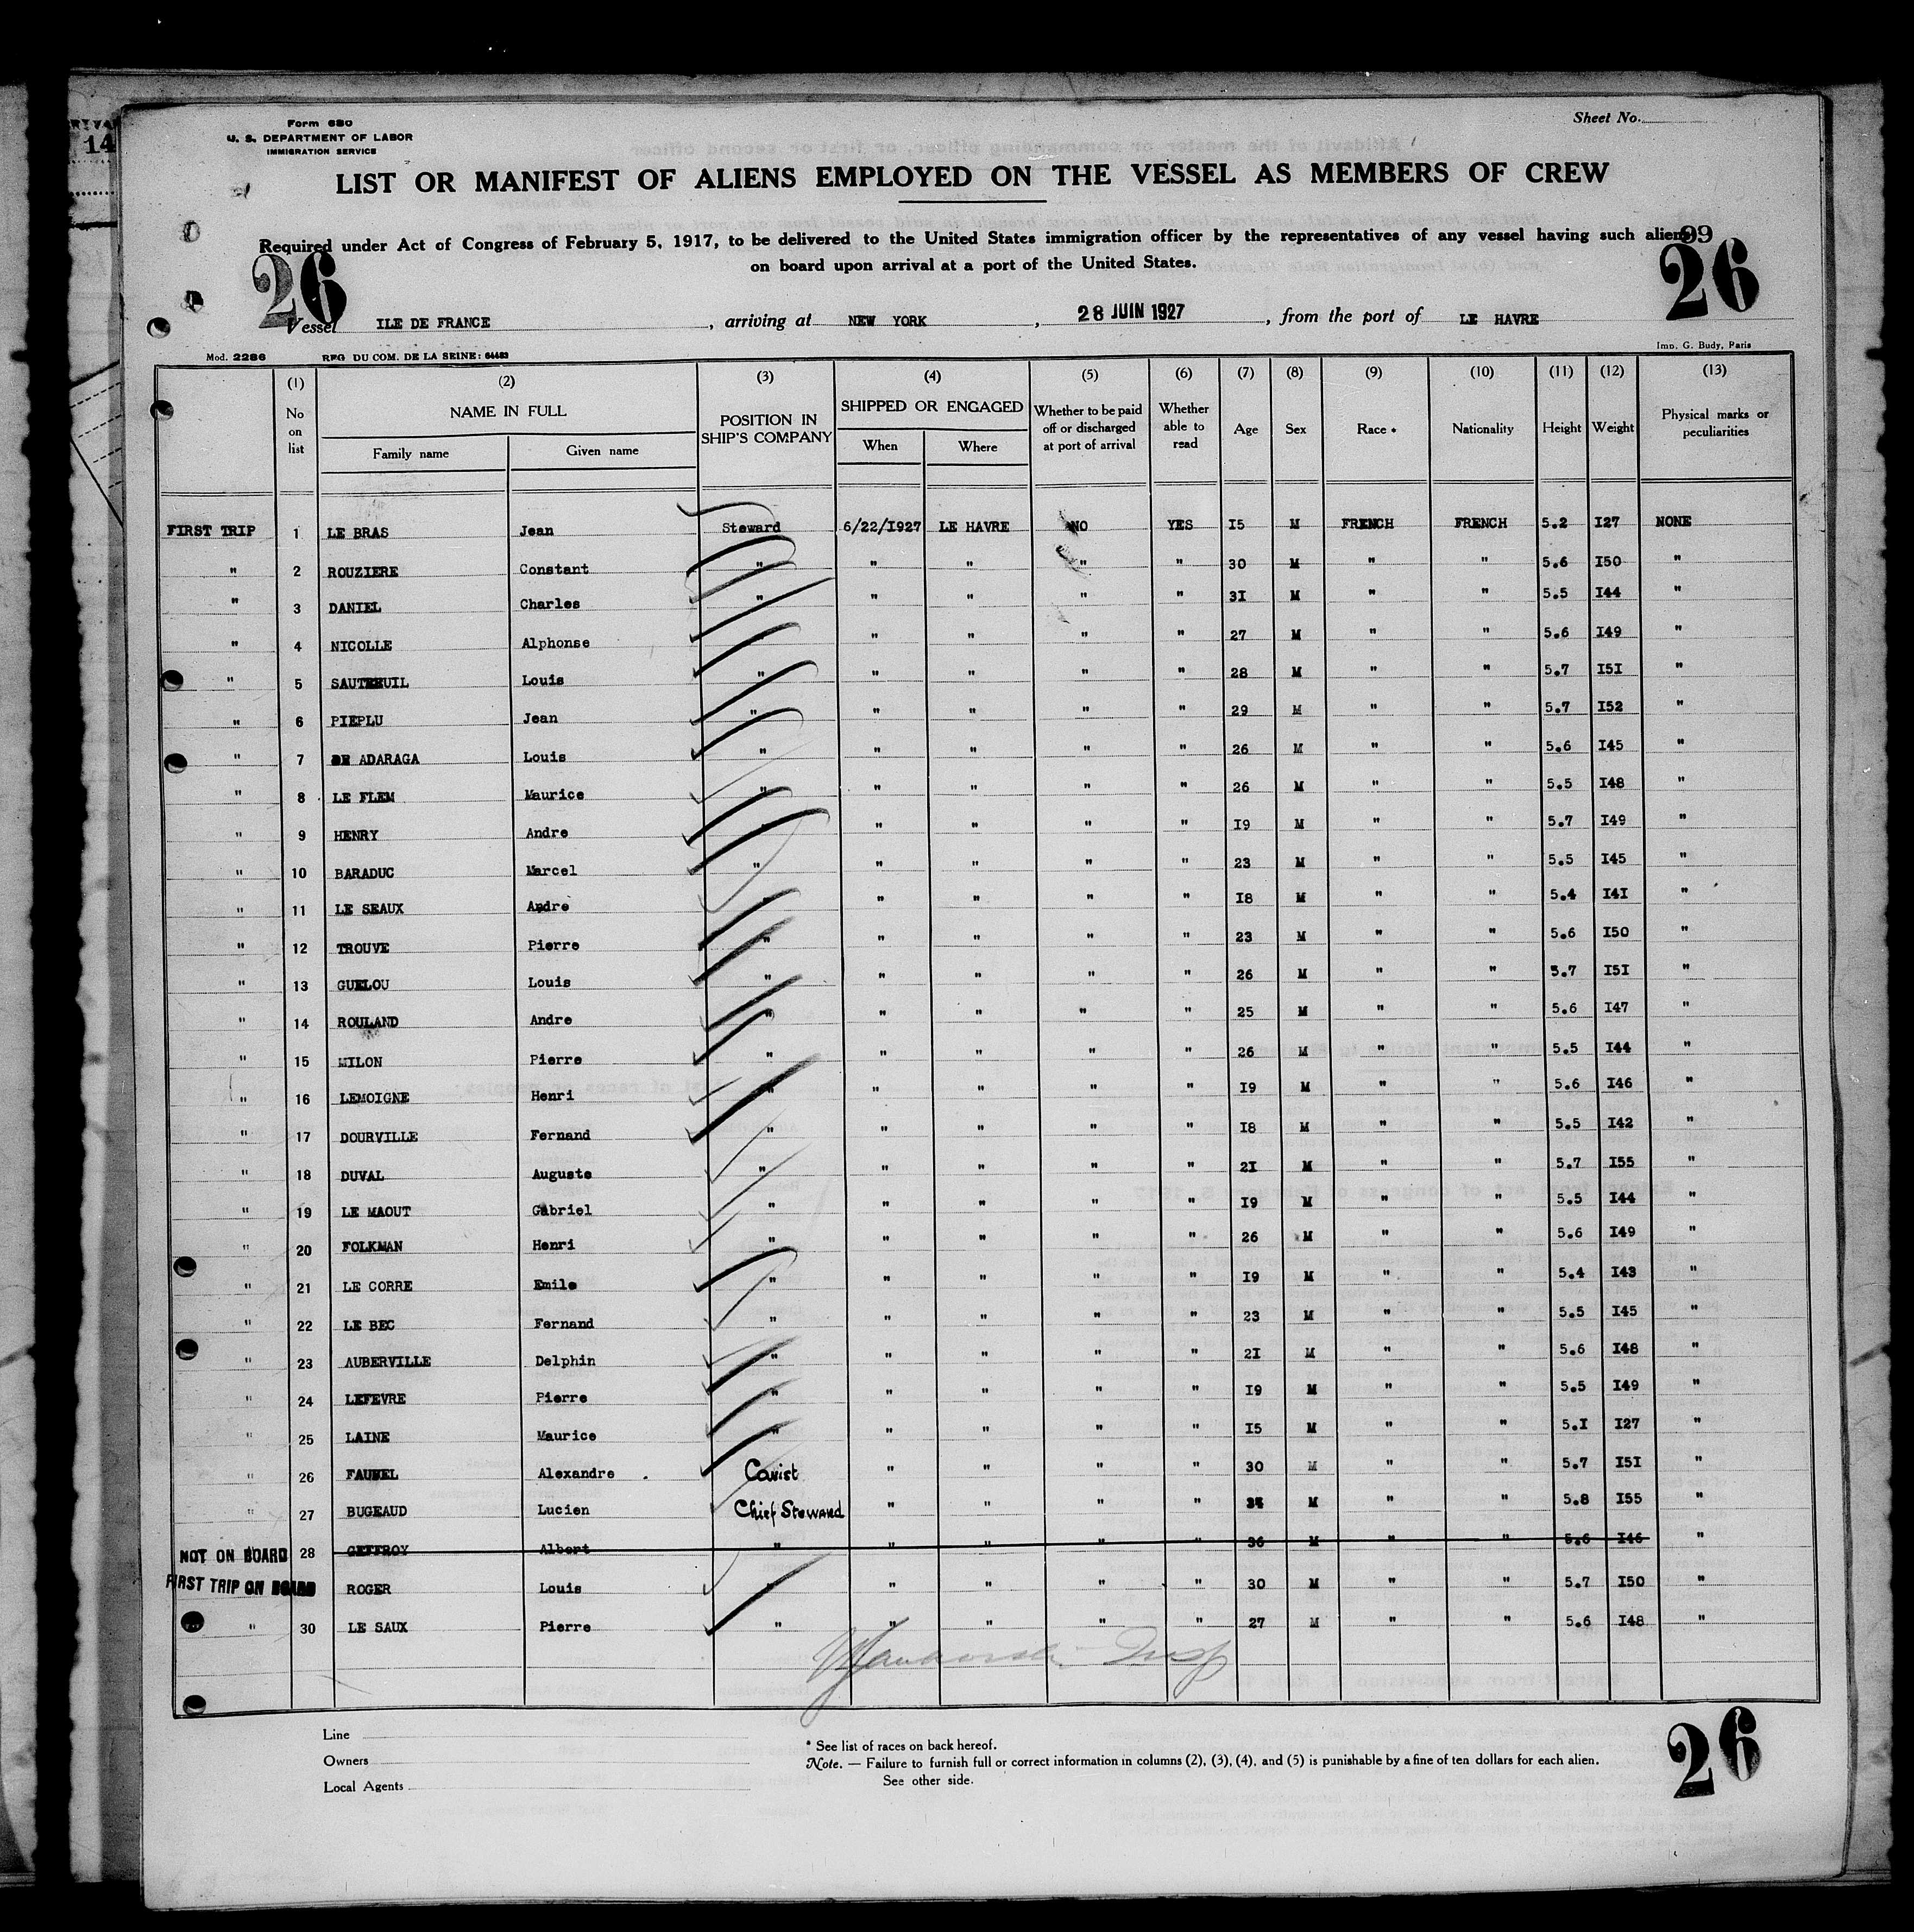 Form 680
U. S. DEPARTMENT OF LABOR
IMMIGRATION SERVICE
Sheet No.
14
LIST OR MANIFEST OF ALIENS EMPLOYED ON THE VESSEL AS MEMBERS OF CREW
Required under Act of Congress of February 5, 1917, to be delivered to the United States immigration officer by the representatives of any vessel having such aliens
99
on board upon arrival at a port of the United States.
26 26
Vessel ILE DE FRANCE, arriving at NEW YORK, 28 JUIN 1927, from the port of LE HAVRE
Mod. 2286 REG DU COM. DE LA SEINE: 64483 Imp. G. Budy, Paris
(1) (2) (3) (4) (5) (6) (7) (8) (9) (10) (11) (12) (13)
No on list NAME IN FULL POSITION IN SHIP'S COMPANY SHIPPED OR ENGAGED Whether to be paid off or discharged at port of arrival Whether able to read Age Sex Race * Nationality Height Weight Physical marks or peculiarities
Family name Given name When Where
FIRST TRIP 1 LE BRAS Jean Steward 6/22/I927 LE HAVRE NO YES I5 M FRENCH FRENCH 5.2 I27 NONE
" 2 ROUZIERE Constant " " " " " 30 M " " 5.6 I50 "
" 3 DANIEL Charles " " " " " 3I M " " 5.5 I44 "
" 4 NICOLLE Alphonse " " " " 27 M " " 5.6 I49 "
" 5 SAUTREUIL Louis " " " " " 28 M " " 5.7 I5I "
" 6 PIEPLU Jean " " " " " 29 M " " 5.7 I52 "
" 7 DE ADARAGA Louis " " " " " 26 M " " 5.6 I45 "
" 8 LE FLEM Maurice " " " " " 26 M " " 5.5 I48 "
" 9 HENRY Andre " " " " " I9 M " " 5.7 I49 "
" 10 BARADUC Marcel " " " " " 23 M " " 5.5 I45 "
" 11 LE SEAUX Andre " " " " " I8 M " " 5.4 I4I "
" 12 TROUVE Pierre " " " " " 23 M " " 5.6 I50 "
" 13 GUELOU Louis " " " " " 26 M " " 5.7 I5I "
" 14 ROULAND Andre " " " " " 25 M " " 5.6 I47 "
" 15 MILON Pierre " " " " " 26 M " " 5.5 I44 "
" 16 LEMOIGNE Henri " " " " " I9 M " " 5.6 I46 "
" 17 DOURVILLE Fernand " " " " " I8 M " " 5.5 I42 "
" 18 DUVAL Auguste " " " " " 2I M " " 5.7 I55 "
" 19 LE MAOUT Gabriel " " " " " I9 M " " 5.5 I44 "
" 20 FOLKMAN Henri " " " " " 26 M " " 5.6 I49 "
" 21 LE CORRE Emile " " " " " I9 M " " 5.4 I43 "
" 22 LE BEC Fernand " " " " " 23 M " " 5.5 I45 "
" 23 AUBERVILLE Delphin " " " " " 2I M " " 5.6 I48 "
" 24 LEFEVRE Pierre " " " " " I9 M " " 5.5 I49 "
" 25 LAINE Maurice " " " " " I5 M " " 5.I I27 "
" 26 Alexandre Cavist " " " " 30 M " " 5.7 I5I "
" 27 BUGEAUD Lucien Chief Steward " " " " M " " 5.8 I55 "
NOT ON BOARD 28 GEFFROY Albert " " " " " 36 M " " 5.6 I46 "
FIRST TRIP ON BOARD ROGER Louis " " " " " 30 M " " 5.7 I50 "
" 30 LE SAUX Pierre " " " " " 27 M " " 5.6 I48 "
Insp
Line
Owners
Local Agents
* See list of races on back hereof.
Note. — Failure to furnish full or correct information in columns (2), (3), (4), and (5) is punishable by a fine of ten dollars for each alien.
See other side.
26